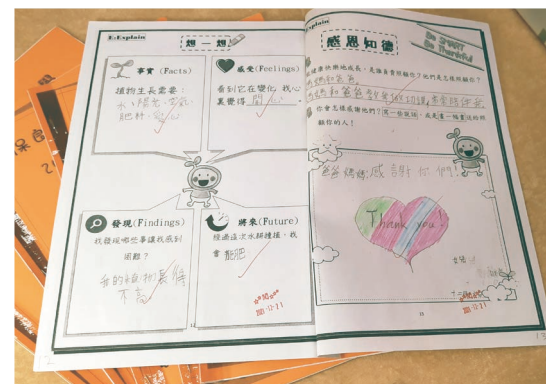 E5Explain
想一想
事實 (Facts)
植物生長需要：
水、陽光、空氣、
肥料、愛心
感受 (Feelings)
看到它在變化，我心
裏覺得 開心。
發現 (Findings)
我發現哪些事讓我感到
困難？
我的植物長得
不高
將來 (Future)
經過這次水耕種植，我
會 施肥
Explain
感恩知德
Be SMART
Be Thankful
健康快樂地成長，是誰負責照顧你？他們是怎樣照顧你？
媽媽和爸爸
媽媽和爸爸教我做功課，
你會怎樣感謝他們？寫一些說話，或是畫一幅畫送給照
顧你的人！
爸爸媽媽：感謝你們！
Thank you!
15